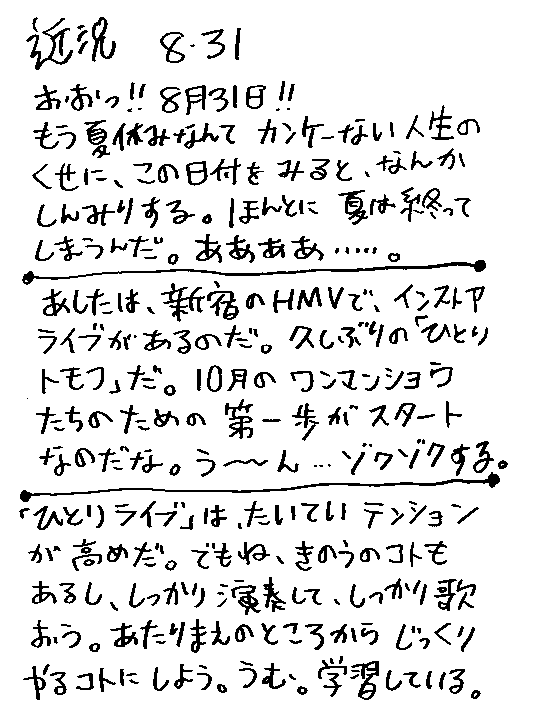 近況 8・31
おおっ!! 8月31日!!
もう夏休みなんて カンケーない人生の
くせに、この日付を みると、なんか
しんみりする。ほんとに 夏は終って
しまうんだ。ああああ・・・・・。
あしたは、新宿のHMVで、インストア
ライブがあるのだ。久しぶりの「ひとり
トモフ」だ。10月の ワンマンショウ
たちのための 第一歩が スタート
なのだな。う〜〜ん…ゾクゾクする。
「ひとりライブ」は、たいてい テンション
が 高めだ。でもね、きのうのコトも
あるし、しっかり 演奏して、しっかり 歌
おう。あたりまえのところから じっくり
やるコトに しよう。うむ。学習している。